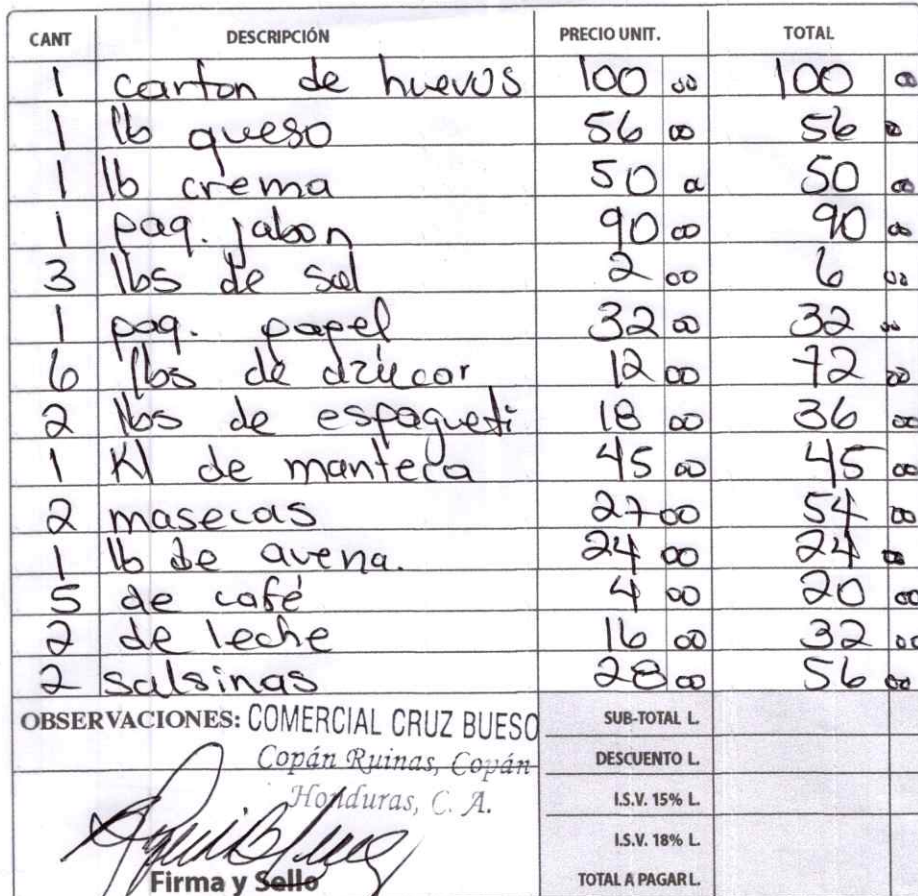 CANT DESCRIPCIÓN PRECIO UNIT. TOTAL
1 carton de huevos 100 00 100 00
1 lb queso 56 00 56 00
1 lb crema 50 00 50 00
1 paq. jabon 90 00 90 00
3 lbs de sal 2 00 6 00
1 paq. papel 32 00 32 00
6 lbs de azúcar 12 00 72 00
2 lbs de espagueti 18 00 36 00
1 Kl de manteca 45 00 45 00
2 masecas 27 00 54 00
1 lb de avena. 24 00 24 00
5 de café 4 00 20 00
2 de leche 16 00 32 00
2 salsinas 28 00 56 00
OBSERVACIONES: COMERCIAL CRUZ BUESO SUB-TOTAL L.
Copán Ruinas, Copán DESCUENTO L.
Honduras, C. A. I.S.V. 15% L.
I.S.V. 18% L.
Firma y Sello TOTAL A PAGAR L.